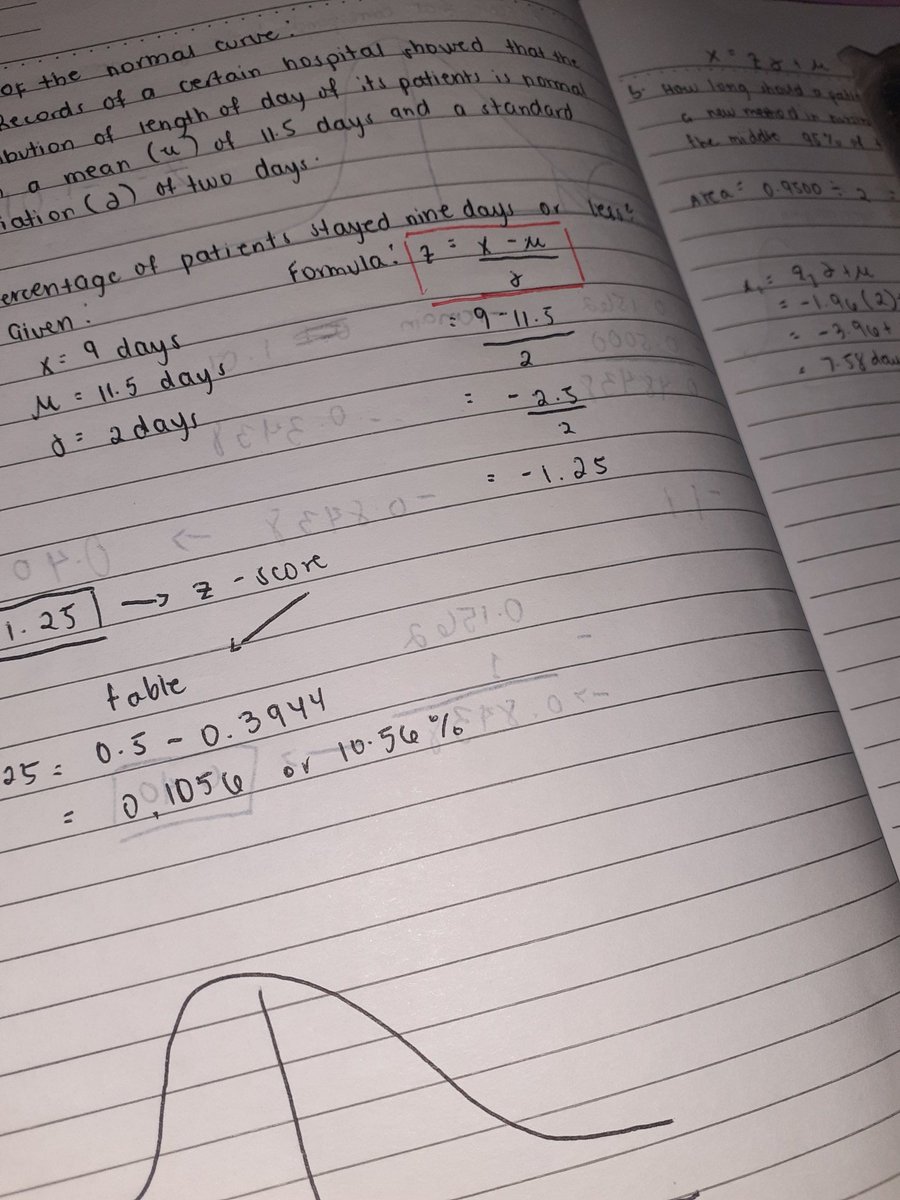 of the normal curve:
Records of a certain hospital showed that the
bution of length of day of its patients is normal
a mean (u) of 11.5 days and a standard
iation (2) of two days.
ercentage of patients stayed nine days or less?
Given:
Formula: z = x - μ
σ
x = 9 days
= 9 - 11.5
2
μ = 11.5 days
= - 2.5
2
σ = 2 days
= -1.25
1.25 → z - score
table
25 = 0.5 - 0.3944
= 0.1056 or 10.56%
x = z σ + μ
b. How long should a
a new method in
the middle 95% of
Area = 0.9500 ÷ 2 =
σ + μ
= -1.96 (2)
= -3.96 +
= 7.58 day